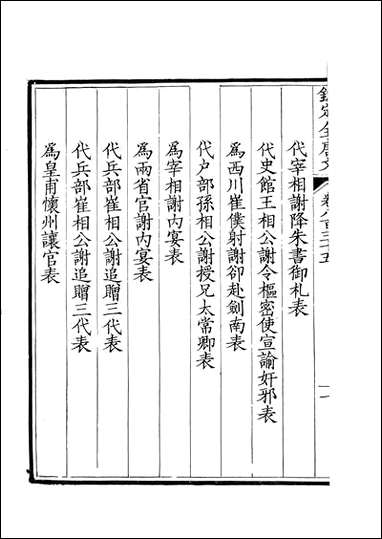 欽定全唐文
卷八百三十五
一
代宰相謝降朱書御札表
代史館王相公謝令樞密使宣諭奸邪表
為西川崔僕射謝卻赴劍南表
代戶部孫相公謝授兄太常卿表
為宰相謝內宴表
為兩省官謝內宴表
代兵部崔相公謝追贈三代表
代兵部崔相公謝追贈三代表
為皇甫懷州讓官表